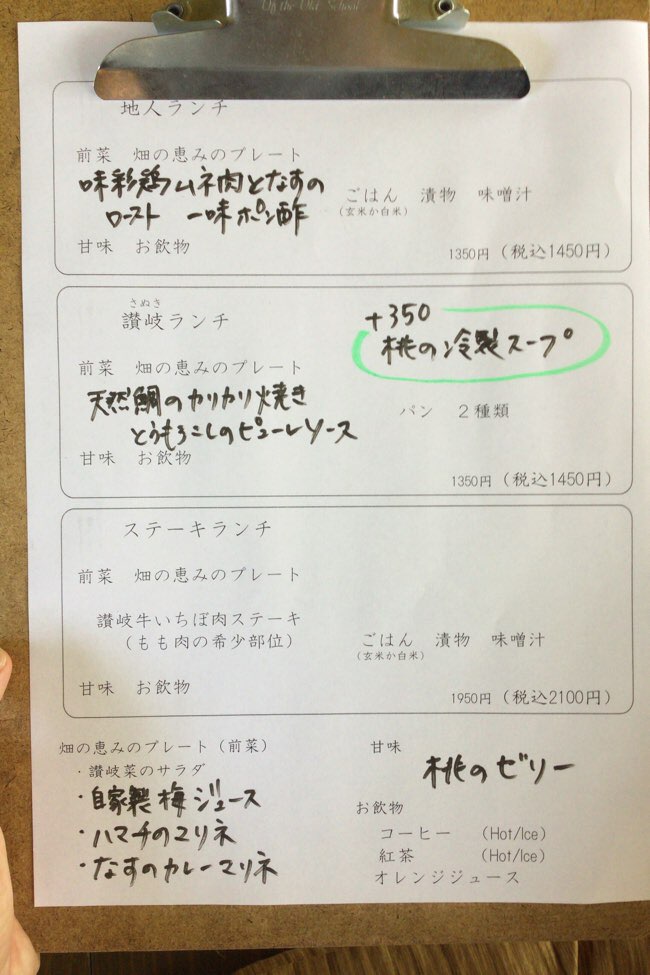 Of the Old School
地人ランチ
前菜 畑の恵みのプレート
味彩鶏ムネ肉となすの
ロースト 一味ポン酢
ごはん 漬物 味噌汁
(玄米か白米)
甘味 お飲物
1350円 (税込1450円)
さぬき
讃岐ランチ
+350
桃の冷製スープ
前菜 畑の恵みのプレート
天然鯛のカリカリ焼き
とうもろこしのピューレソース
パン 2種類
甘味 お飲物
1350円 (税込1450円)
ステーキランチ
前菜 畑の恵みのプレート
讃岐牛いちぼ肉ステーキ
(もも肉の希少部位)
ごはん 漬物 味噌汁
(玄米か白米)
甘味 お飲物
1950円 (税込2100円)
畑の恵みのプレート(前菜)
・讃岐菜のサラダ
・自家製梅ジュース
・ハマチのマリネ
・なすのカレーマリネ
甘味
桃のゼリー
お飲物
コーヒー (Hot/Ice)
紅茶 (Hot/Ice)
オレンジジュース